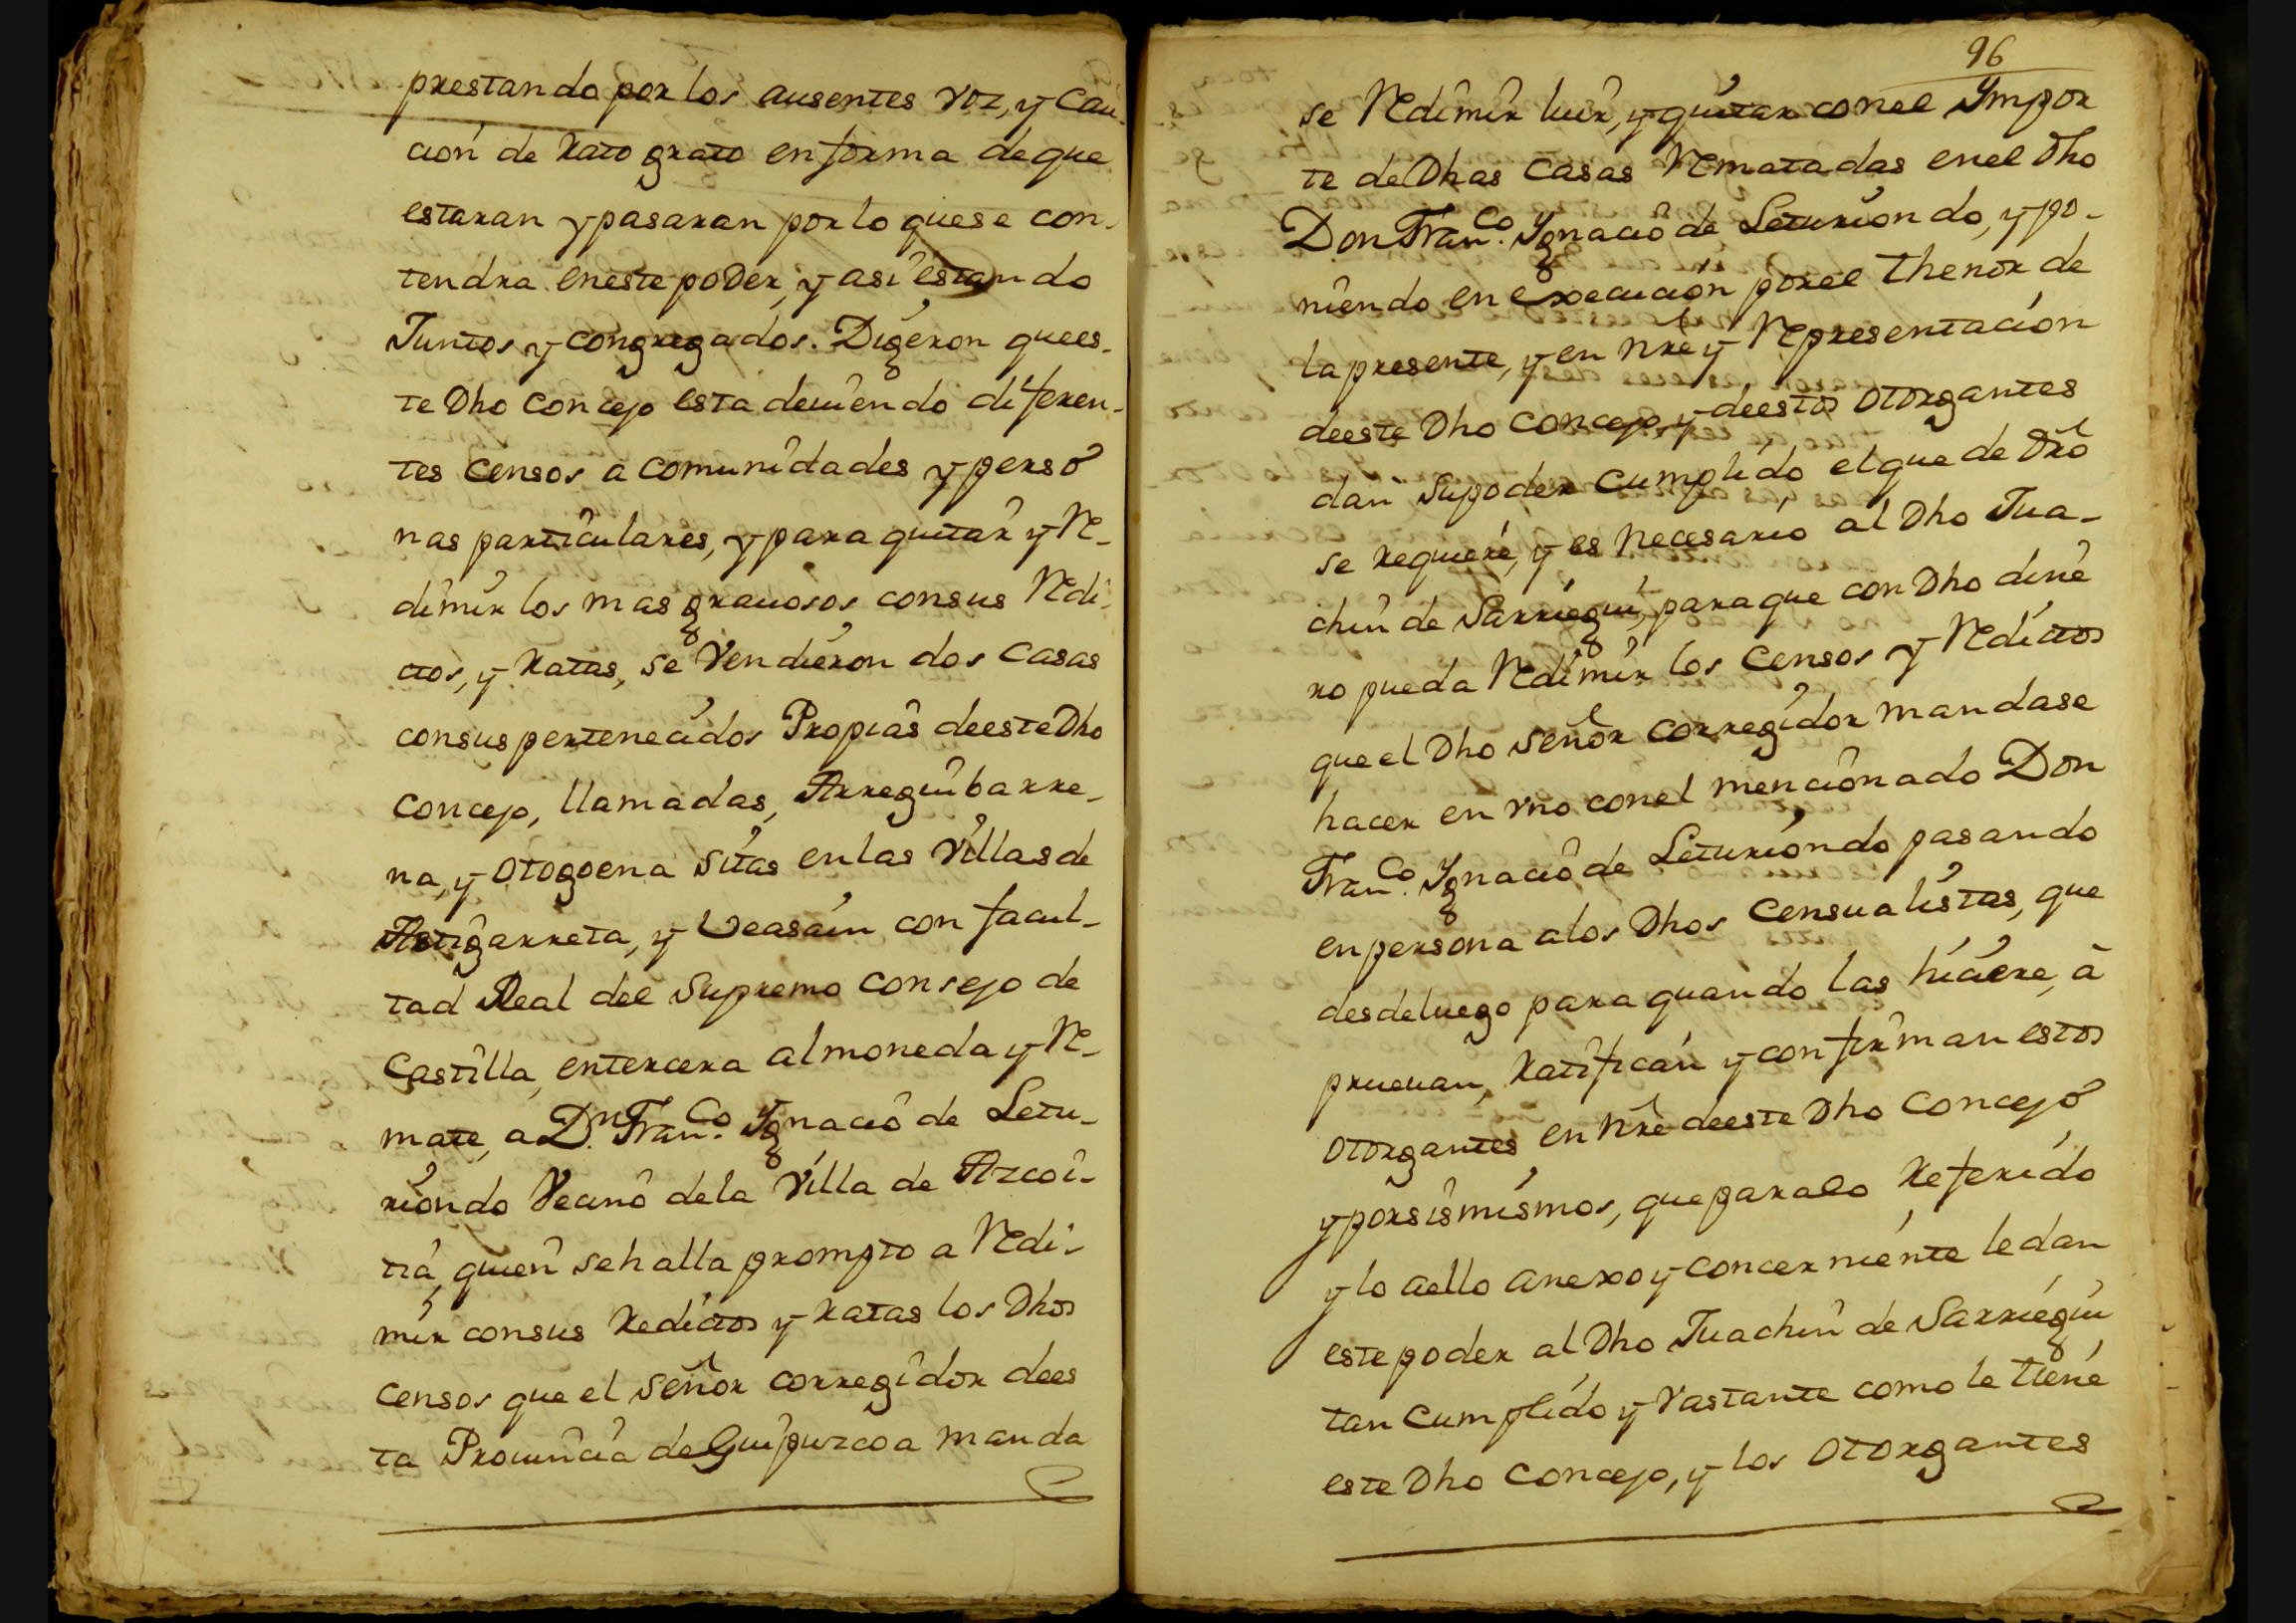 prestando por los ausentes voz, y cau-
cion de rato grato en forma de que
estaran y pasaran por lo que se con-
tendra en este poder, y asi estando
Juntos y congregados. Digeron que es-
te Dho concejo esta deuiendo diferen-
tes censos a comunidades y perso
nas particulares, y para quitar y Re-
dimir los mas grauosos con sus Redi-
ctos, y ratas, se Vendieron dos casas
con sus pertenecidos Propias de este Dho
concejo, llamadas, Arreguibarre-
na, y otogoena sitas en las Villas de
Astigarreta, y Veasain con facul-
tad Real del Supremo consejo de
Castilla, en tercera almoneda y Re-
mate, a Dn. Franco. Ygnacio de Letu-
riondo Vecino de la Villa de Azcoi-
tia, quien se halla prompto a Redi-
mir con sus redictos y ratas los Dhos
censos que el señor corregidor de es
ta Prouincia de Guipuzcoa manda
96
se Redimir luir, y quitar con el Ympor
te de Dhas casas Rematadas en el Dho
Don Franco. Ygnacio de Leturiondo, y po-
niendo en execucion por el thenor de
la presente, y en nre y Representacion
de este Dho concejo, y de estos otorgantes
dan su poder cumplido el que de Dro
se requiere, y es necesario al Dho Jua-
chin de Sarriegui, para que con Dho dine
ro pueda Redimir los censos y Redictos
que el Dho señor corregidor mandase
hacer en vno con el mencionado Don
Franco. Ygnacio de Leturiondo pasando
en persona a los Dhos censualistas, que
desde luego para quando las hiciere, a
prueuan, ratifican y confirman estos
otorgantes en nre de este Dho concejo
y por si mismos, que para lo referido
y lo a ello anexo y concerniente le dan
este poder al Dho Juachin de Sarriegui
tan cumplido y vastante como le tiene
este Dho concejo, y los otorgantes